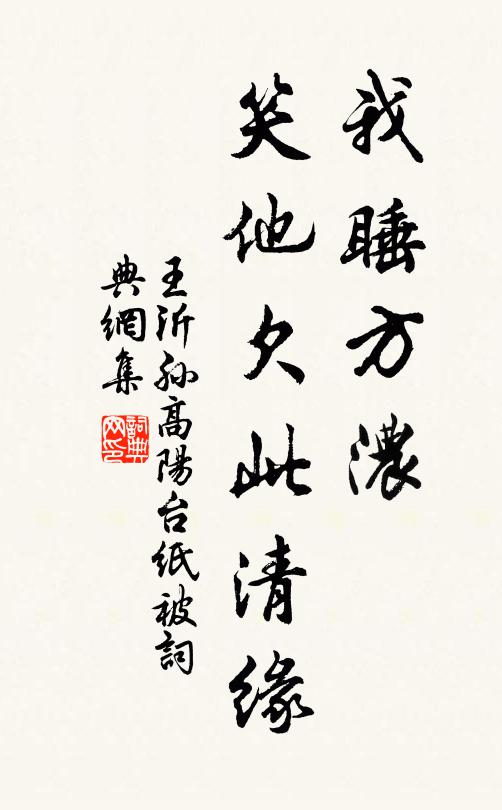 我睡方濃
笑他欠此清緣
王沂孙高陽台紙被詞
典網集
詞典
网印